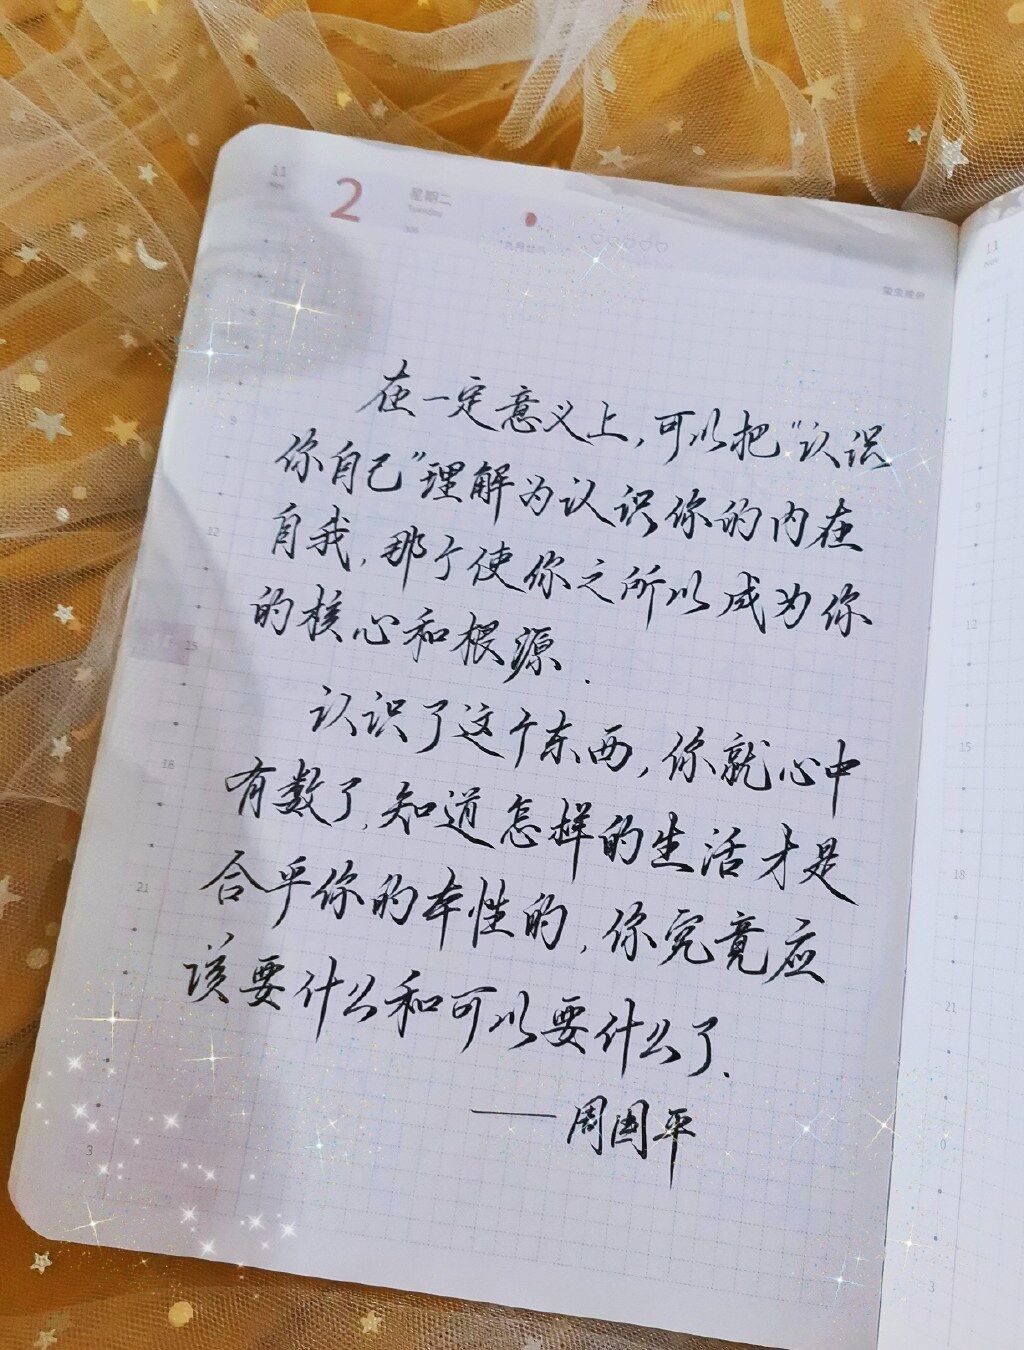 11
Nov
2
星期二
Tuesday
306
九月廿八
在一定意义上,可以把“认识
你自己”理解为认识你的内在
自我,那个使你之所以成为你
的核心和根源.
认识了这个东西,你就心中
有数了,知道怎样的生活才是
合乎你的本性的,你究竟应
该要什么和可以要什么了.
——周国平
6
9
12
15
18
21
3
11
Nov
6
9
12
15
18
21
0
3